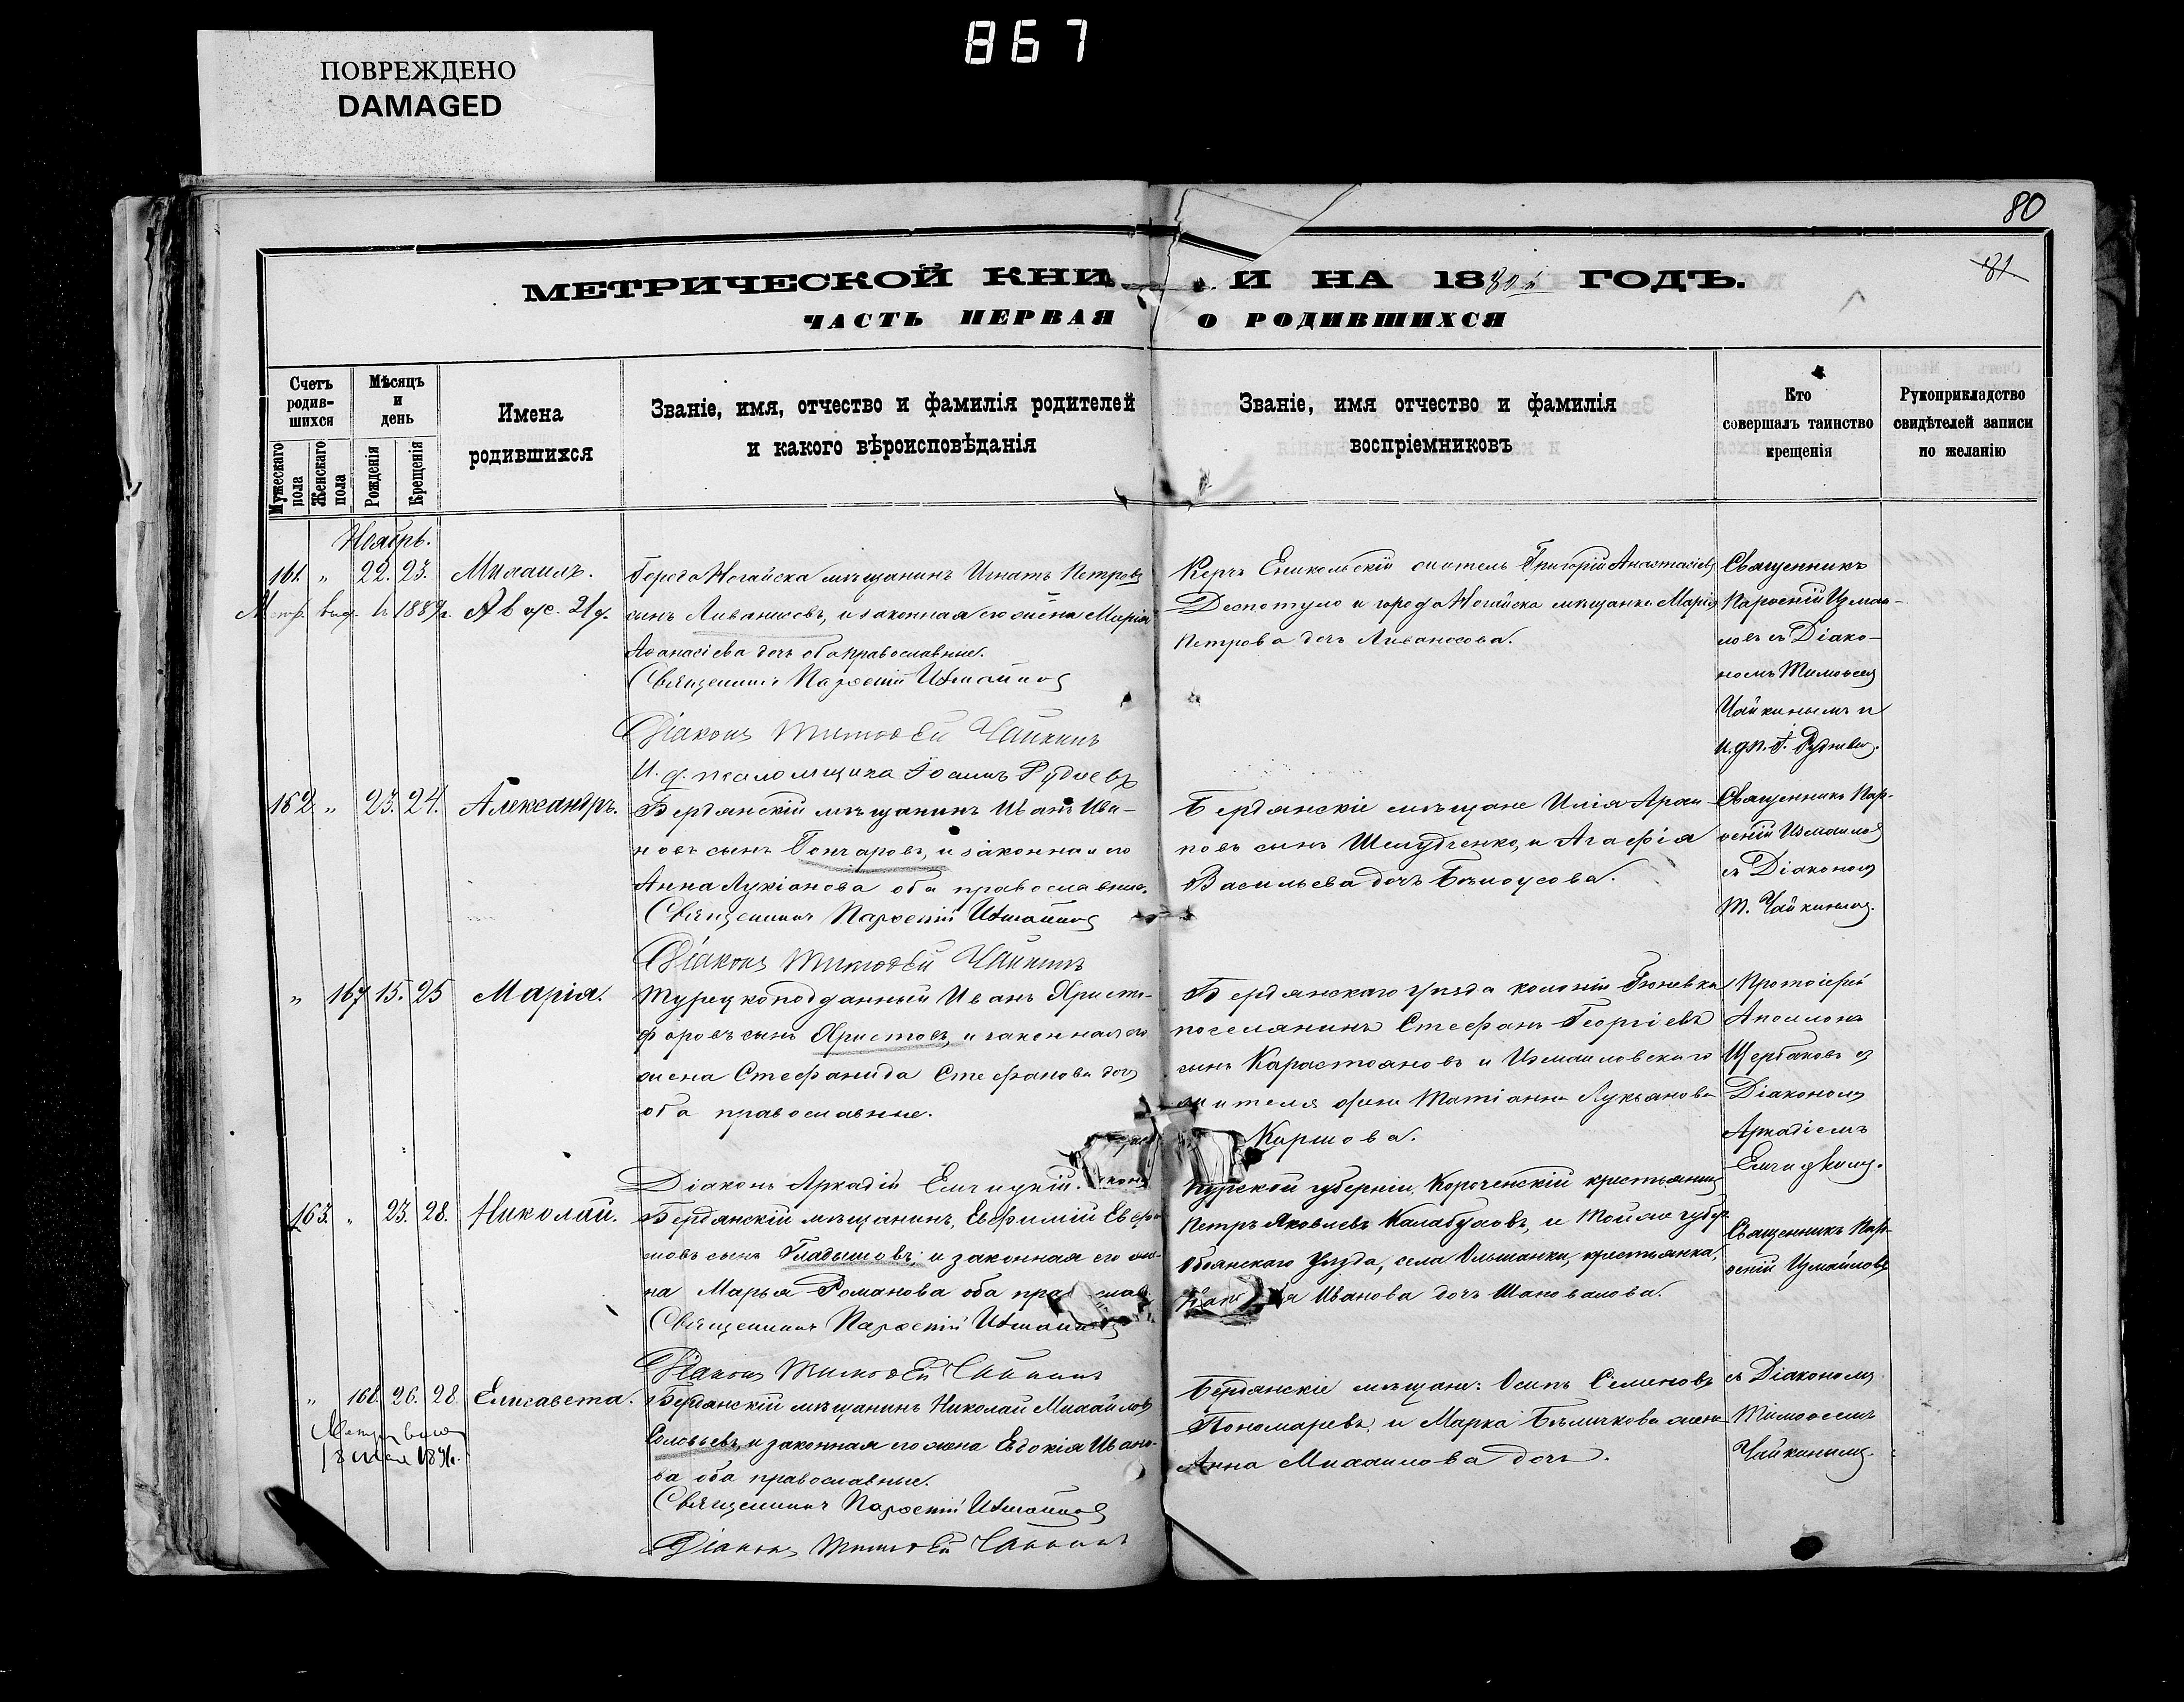 867
ПОВРЕЖДЕНО
DAMAGED
80
81
МЕТРИЧЕСКОЙ КНИ И НА 1880й ГОДЪ.
ЧАСТЬ ПЕРВАЯ О РОДИВШИХСЯ
Счетъ родив-шихся
Мужескаго пола
Женскаго пола
Мѣсяцъ и день
Рожденія
Крещенія
Имена родившихся
Званіе, имя, отчество и фамилія родителей
и какого вѣроисповѣданія
Званіе, имя отчество и фамилія
воспріемниковъ
Кто
совершалъ таинство
крещенія
Рукоприкладство
свидѣтелей записи
по желанію
Ноябрь.
161. " 22. 23. Михаилъ.
Города Ногайска мѣщанинъ Игнатъ Петровъ
сынъ Ливаносовъ, и законная его жена Марія
Аѳанасіева дочь оба православные.
Священникъ Парѳеній Измаиловъ
Діаконъ Тимоѳей Чайкинъ
И. д. псаломщика Іоаннъ Рудневъ
Керчь Еникольскій житель Григорій Анастасіевъ
Деспотуло и города Ногайска мѣщанка Марія
Петрова дочь Ливаносова.
Священникъ
Парѳеній Измаи-
ловъ съ Діако-
номъ Тимоѳеемъ
Чайкинымъ и
162 " 23. 24. Александръ.
Бердянскій мѣщанинъ Иванъ Ива-
новъ сынъ Гончаровъ, и законная его
Анна Лукіанова оба православные.
Священникъ Парѳеній Измаиловъ
Діаконъ Тимоѳей Чайкинъ
Бердянскіе мѣщане Илія
повъ сынъ и Агафія
Васильева дочь Бѣлоусова.
Священникъ Пар-
ѳеній Измаиловъ
съ Діакономъ
Т. Чайкинымъ.
" 167 15. 25 Марія.
Турецкоподданный Иванъ Христо-
форовъ сынъ Христовъ, и законная его
жена Стефанида Стефанова дочь
оба православные.
Діаконъ Аркадій
Бердянскаго уѣзда колоніи
поселянинъ Стефанъ Георгіевъ
сынъ Карастояновъ и Измаиловскаго
жителя жена Татіанна Лукьянова
Протоіерей
Аполлонъ
Щербаковъ съ
Діакономъ
Аркадіемъ
163. " 23. 28. Николай.
Бердянскій мѣщанинъ, Евфимій Евфи-
мовъ сынъ Гладышовъ; и законная его же-
на Марья Романова оба
Священникъ Парѳеній Измаиловъ
Діаконъ Тимоѳей Чайкинъ
Курской губерніи, Короченскій крестьянинъ
Петръ Яковлевъ Калабуховъ, и тойже губер.
Обоянскаго Уѣзда, села Ольшанки, крестьянка,
Иванова дочь Шаповалова.
Священникъ Пар-
ѳеній Измайловъ
" 168. 26. 28. Елисавета.
18 мая
Бердянскій мѣщанинъ Николай Михайловъ
Соловьевъ, и законная его жена Евдокія Ивано-
ва оба православные.
Священникъ Парѳеній Измаиловъ
Діаконъ Тимоѳей Чайкинъ
Бердянскіе мѣщане: Осипъ Семеновъ
Пономаревъ, и Марка Бѣличкова жена
Анна Михаилова дочь.
съ Діакономъ
Тимоѳеемъ
Чайкинымъ.